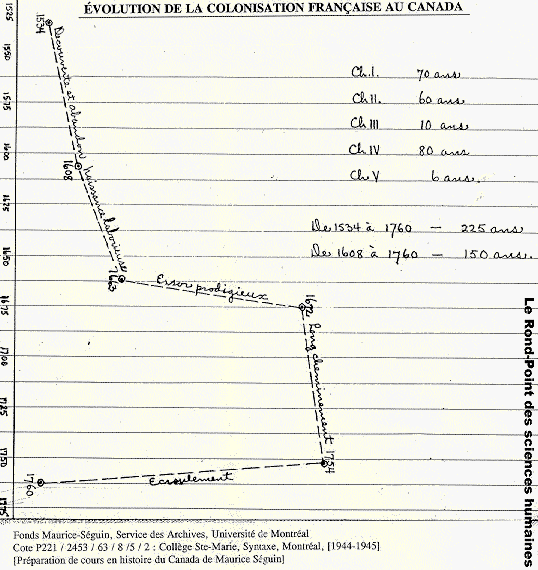 ÉVOLUTION DE LA COLONISATION FRANÇAISE AU CANADA
1525
1550
1575
1600
1625
1650
1675
1700
1725
1750
1775
1534
Découverte et abandon
1608
naissance laborieuse
1663
Essor prodigieux
1672
Long cheminement
1754
Ecroulement
1760
Ch. I. 70 ans
Ch II. 60 ans
Ch III 10 ans
Ch IV 80 ans
Ch V 6 ans.
De 1534 à 1760 — 225 ans
De 1608 à 1760 — 150 ans.
Le Rond-Point des sciences humaines
Fonds Maurice-Séguin, Service des Archives, Université de Montréal
Cote P221 / 2453 / 63 / 8 /5 / 2 : Collège Ste-Marie, Syntaxe, Montréal, [1944-1945]
[Préparation de cours en histoire du Canada de Maurice Séguin]